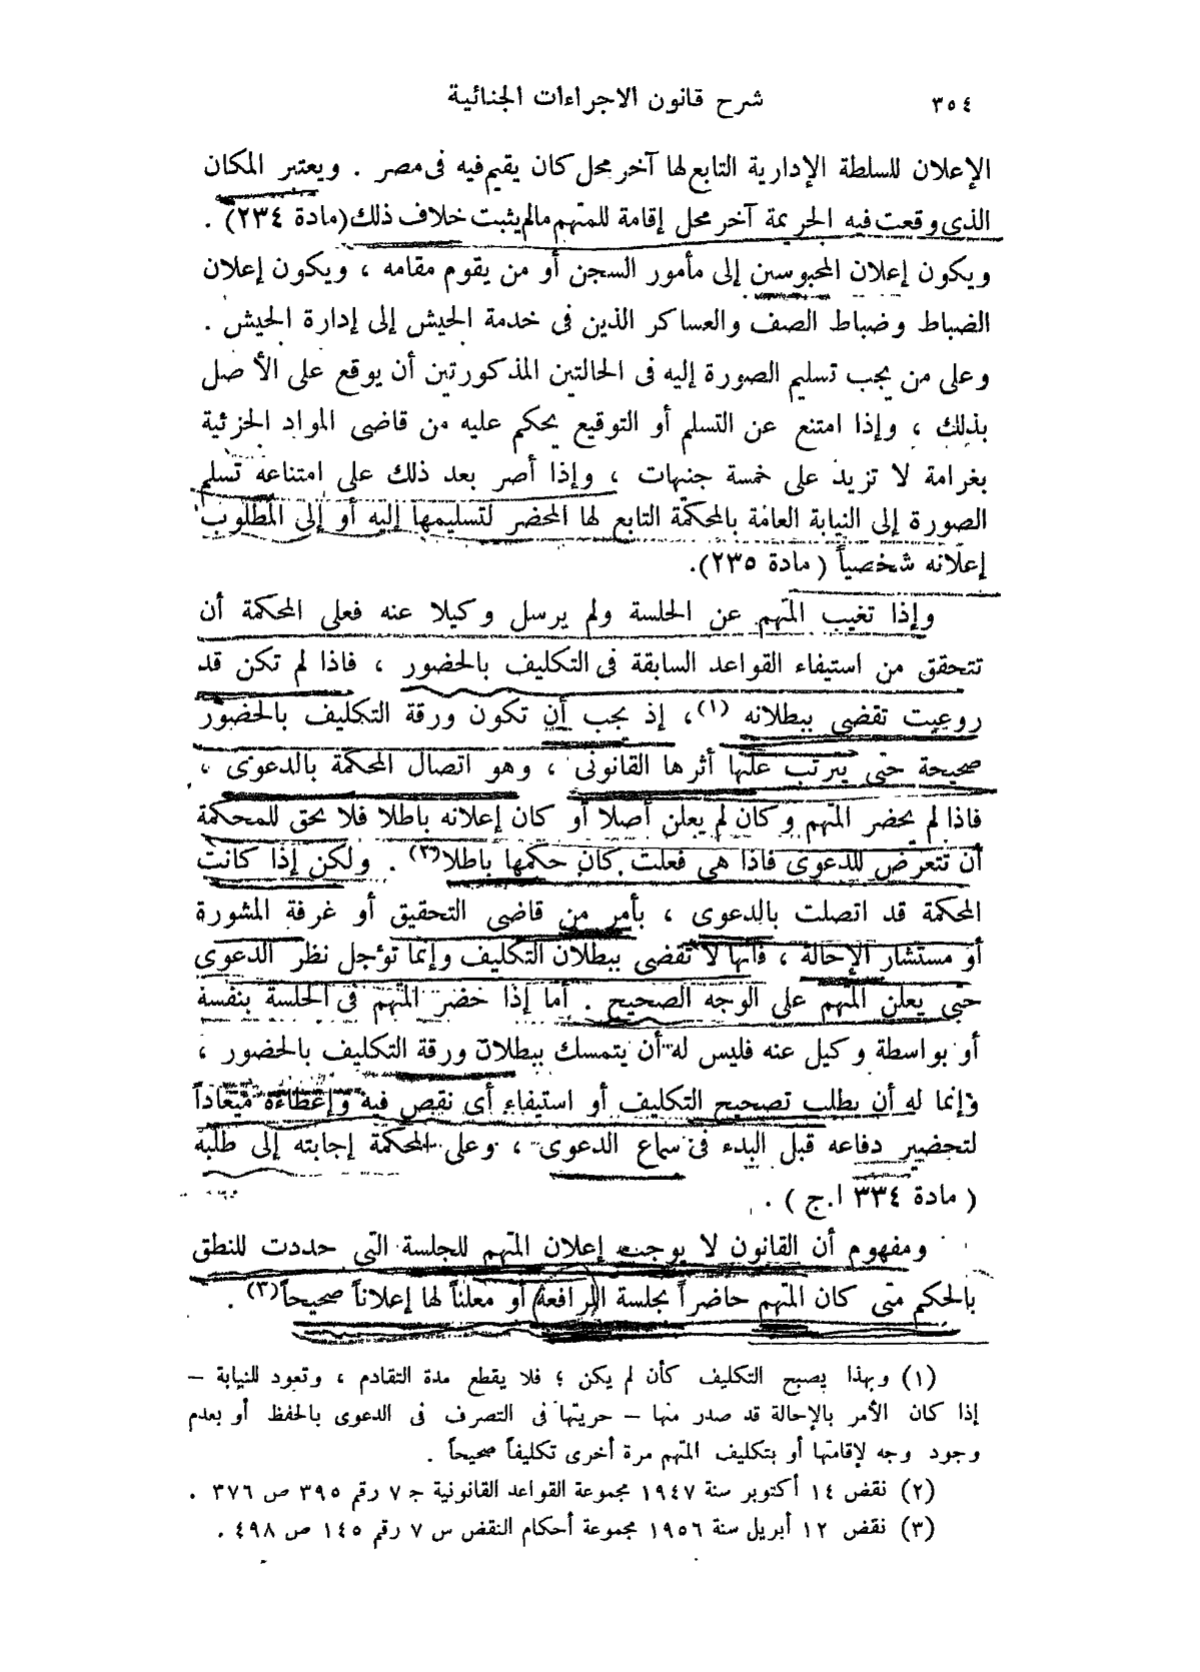 ٣٥٤
شرح قانون الاجراءات الجنائية
الإعلان للسلطة الإدارية التابع لها آخر محل كان يقيم فيه فى مصر . ويعتبر المكان
الذى وقعت فيه الجريمة آخر محل إقامة للمتهم مالم يثبت خلاف ذلك (مادة ٢٣٤) .
ويكون إعلان المحبوسين إلى مأمور السجن أو من يقوم مقامه ، ويكون إعلان
الضباط وضباط الصف والعساكر الذين فى خدمة الجيش إلى إدارة الجيش .
وعلى من يجب تسليم الصورة إليه فى الحالتين المذكورتين أن يوقع على الأصل
بذلك ، وإذا امتنع عن التسلم أو التوقيع يحكم عليه من قاضى المواد الجزئية
بغرامة لا تزيد على خمسة جنيهات ، وإذا أصر بعد ذلك على امتناعه تسلم
الصورة إلى النيابة العامة بالمحكمة التابع لها المحضر لتسليمها إليه أو إلى المطلوب
إعلانه شخصياً ( مادة ٢٣٥).
وإذا تغيب المتهم عن الجلسة ولم يرسل وكيلا عنه فعلى المحكمة أن
تتحقق من استيفاء القواعد السابقة فى التكليف بالحضور ، فاذا لم تكن قد
روعيت تقضى ببطلانه (١)، إذ يجب أن تكون ورقة التكليف بالحضور
صحيحة حتى يترتب عليها أثرها القانونى ، وهو اتصال المحكمة بالدعوى ،
فاذا لم يحضر المتهم وكان لم يعلن أصلا أو كان إعلانه باطلا فلا يحق للمحكمة
أن تتعرض للدعوى فاذا هى فعلت كان حكمها باطلا(٢) . ولكن إذا كانت
المحكمة قد اتصلت بالدعوى ، بأمر من قاضى التحقيق أو غرفة المشورة
أو مستشار الإحالة ، فانها لا تقضى ببطلان التكليف وإنما تؤجل نظر الدعوى
حتى يعلن المتهم على الوجه الصحيح . أما إذا حضر المتهم فى الجلسة بنفسه
أو بواسطة وكيل عنه فليس له أن يتمسك ببطلان ورقة التكليف بالحضور ،
وإنما له أن يطلب تصحيح التكليف أو استيفاء أى نقص فيه وإعطاءه ميعاداً
لتحضير دفاعه قبل البدء فى سماع الدعوى ، وعلى المحكمة إجابته إلى طلبه
( مادة ٣٣٤ ا.ج ) .
ومفهوم أن القانون لا يوجب إعلان المتهم للجلسة التى حددت للنطق
بالحكم متى كان المتهم حاضراً بجلسة المرافعة أو معلناً لها إعلاناً صحيحاً(٣) .
(١) وبهذا يصبح التكليف كأن لم يكن ؛ فلا يقطع مدة التقادم ، وتعود للنيابة –
إذا كان الأمر بالإحالة قد صدر منها – حريتها فى التصرف فى الدعوى بالحفظ أو بعدم
وجود وجه لإقامتها أو بتكليف المتهم مرة أخرى تكليفاً صحيحاً .
(٢) نقض ١٤ أكتوبر سنة ١٩٤٧ مجموعة القواعد القانونية ج ٧ رقم ٣٩٥ ص ٣٧٦ .
(٣) نقض ١٢ أبريل سنة ١٩٥٦ مجموعة أحكام النقض س ٧ رقم ١٤٥ ص ٤٩٨ .